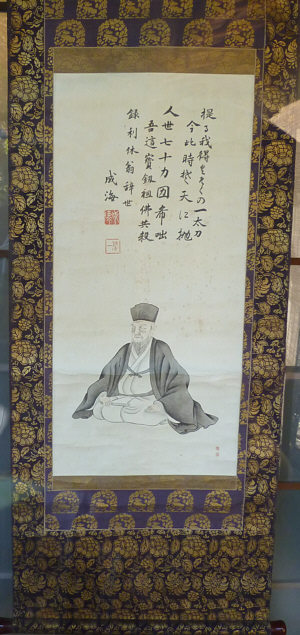 提る我得具足の一太刀
今此時そ天に抛
人世七十力囲希咄
吾這寳釼祖佛共殺
錄利休翁辞世